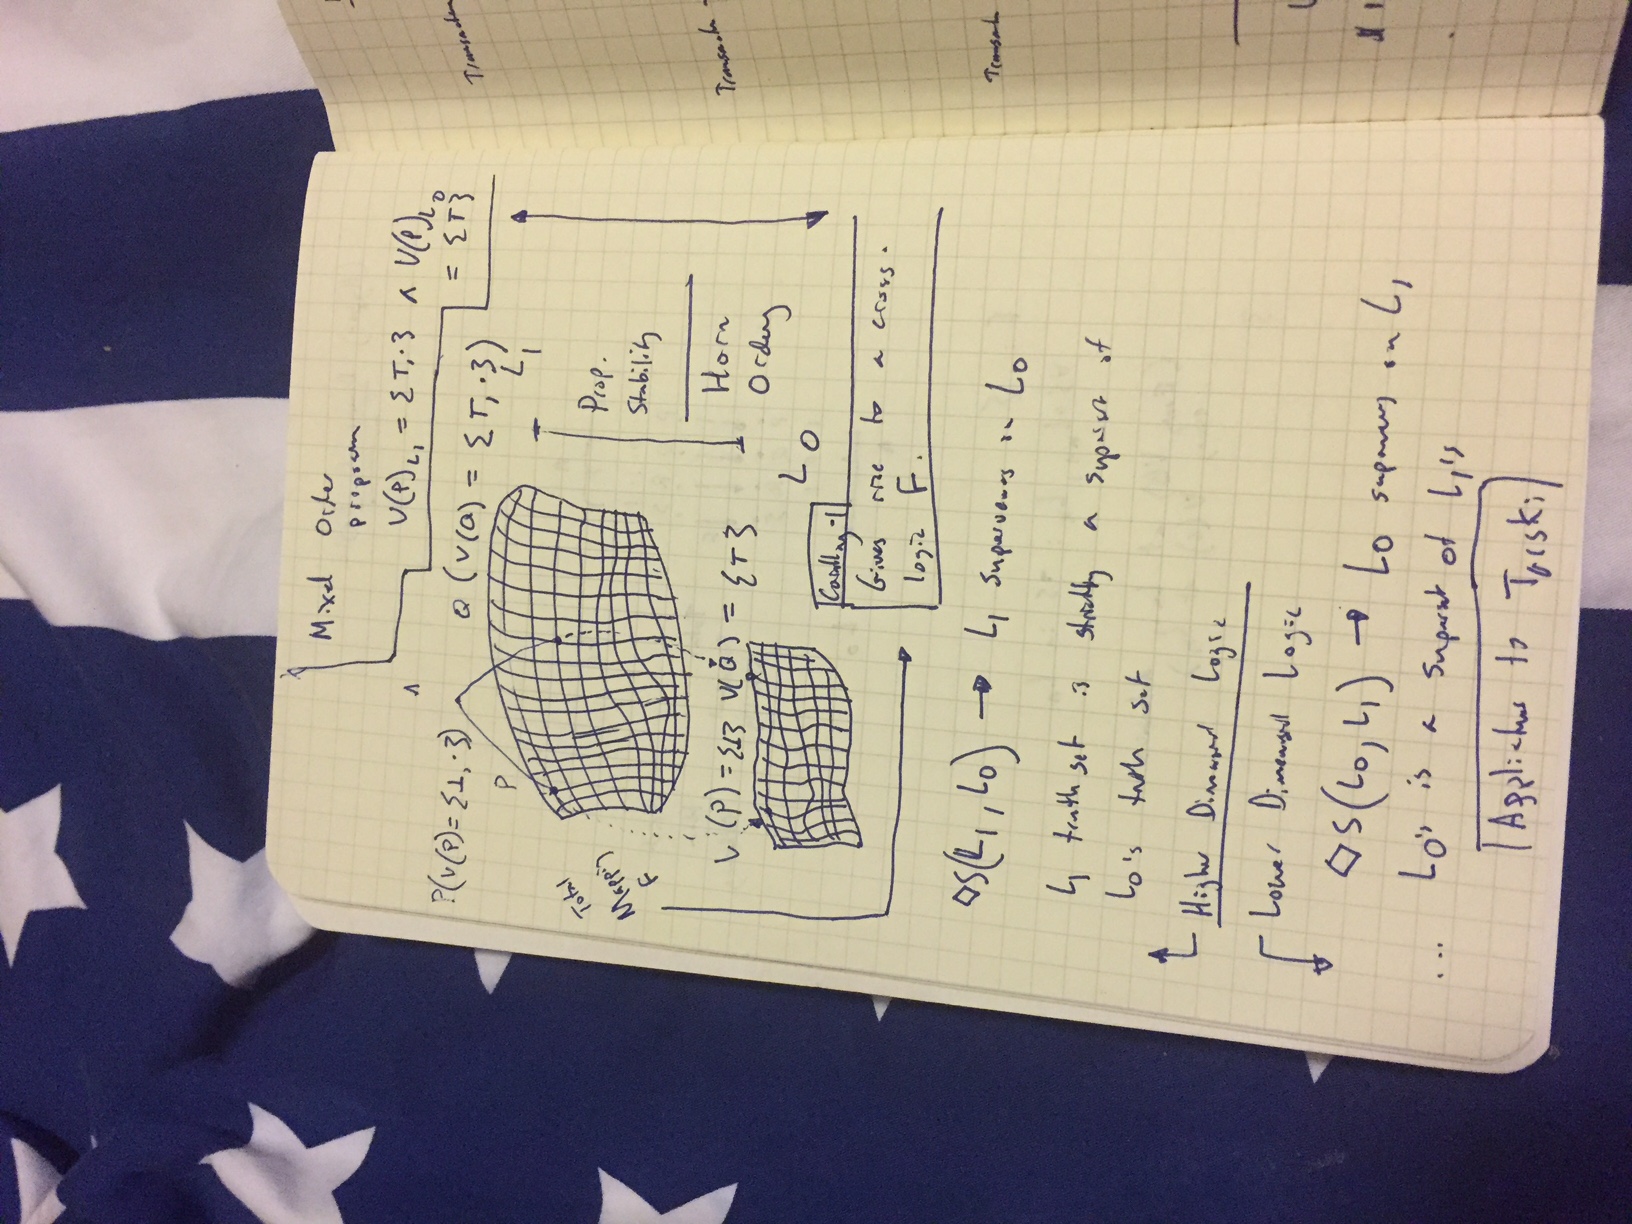 Mixed Order
program
V(P)L₁ = {T, ·} ∧ V(P)L₀
= {T}
∧
P(V(P) = {⊥, ·})
Q (V(Q) = {T, ·})
P
L₁
Total
Mapping
F
Prop.
Stability
Horn
Ordering
V(P) = {⊥} V(Q) = {T}
L₀
Gives rise to a cross-
logic F.
◇S(L₁, L₀) → L₁ supervenes on L₀
L₁ truth set is strictly a superset of
L₀'s truth set
Higher Dimensional Logic
Lower Dimensional Logic
◇S(L₀, L₁) → L₀ supervenes on L₁
... L₀'s is a superset of L₁'s
Applications to Tarski
Transaction
Transaction
Transaction